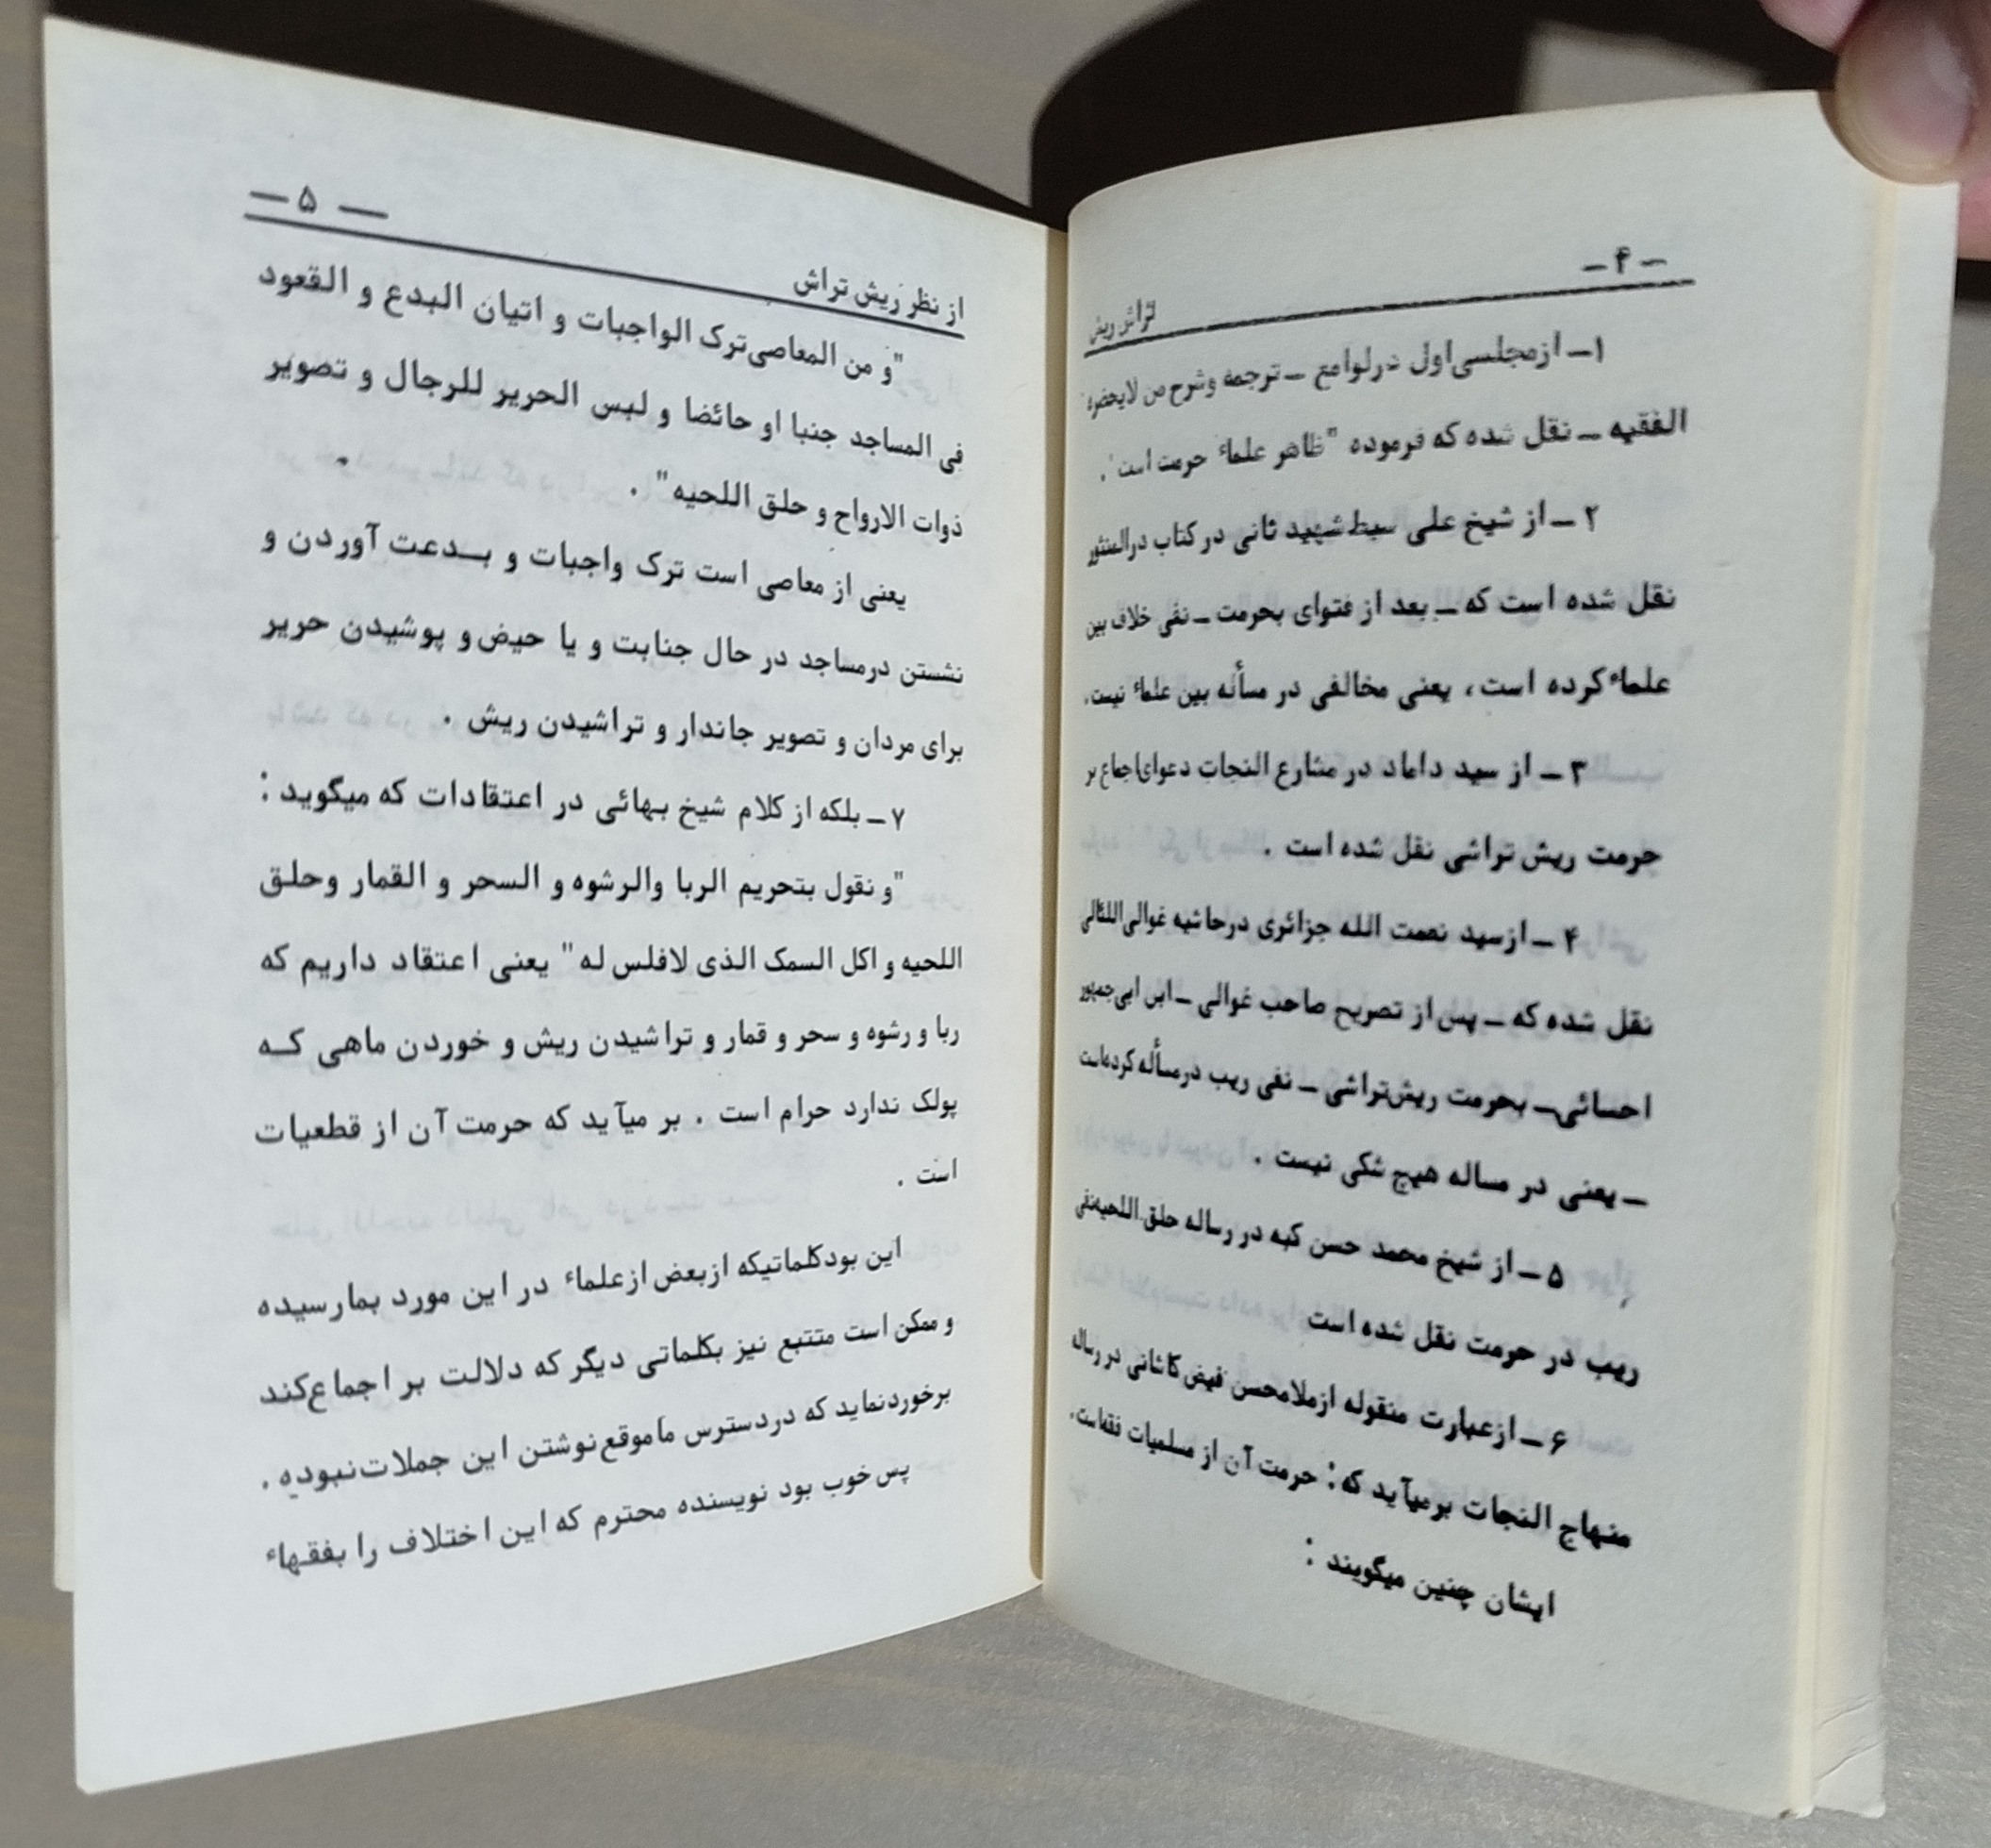 - ۴ -
تراش ریش
۱ - از مجلسی اول در لوامع - ترجمه و شرح من لایحضره
الفقیه - نقل شده که فرموده "ظاهر علماء حرمت است".
۲ - از شیخ علی سبط شهید ثانی در کتاب درالمنثور
نقل شده است که - بعد از فتوای بحرمت - نفی خلاف بین
علماء کرده است، یعنی مخالفی در مسأله بین علماء نیست.
۳ - از سید داماد در مشارع النجات دعوای اجماع بر
حرمت ریش تراشی نقل شده است .
۴ - از سید نعمت الله جزائری در حاشیه غوالی اللئالی
نقل شده که - پس از تصریح صاحب غوالی - ابن ابی جمهور
احسائی - بحرمت ریش‌تراشی - نفی ریب در مسأله کرده‌است
- یعنی در مساله هیچ شکی نیست .
۵ - از شیخ محمد حسن کبه در رساله حلق اللحیه نفی
ریب در حرمت نقل شده است
۶ - از عبارت منقوله از ملامحسن فیض کاشانی در رساله
منهاج النجات برمیآید که: حرمت آن از مسلمیات فقه‌است.
ایشان چنین میگویند :
- ۵ -
از نظر ریش تراش
"و من المعاصی ترک الواجبات و اتیان البدع و القعود
فی المساجد جنبا او حائضا و لبس الحریر للرجال و تصویر
ذوات الارواح و حلق اللحیه" .
یعنی از معاصی است ترک واجبات و بـدعت آوردن و
نشستن در مساجد در حال جنابت و یا حیض و پوشیدن حریر
برای مردان و تصویر جاندار و تراشیدن ریش .
۷ - بلکه از کلام شیخ بهائی در اعتقادات که میگوید :
"و نقول بتحریم الربا والرشوه و السحر و القمار وحلق
اللحیه و اکل السمک الذی لافلس له" یعنی اعتقاد داریم که
ربا و رشوه و سحر و قمار و تراشیدن ریش و خوردن ماهی کـه
پولک ندارد حرام است . بر میآید که حرمت آن از قطعیات
است .
این بود کلماتیکه از بعض از علماء در این مورد بما رسیده
و ممکن است متتبع نیز بکلماتی دیگر که دلالت بر اجماع کند
برخورد نماید که در دسترس ما موقع نوشتن این جملات نبوده .
پس خوب بود نویسنده محترم که این اختلاف را بفقهاء